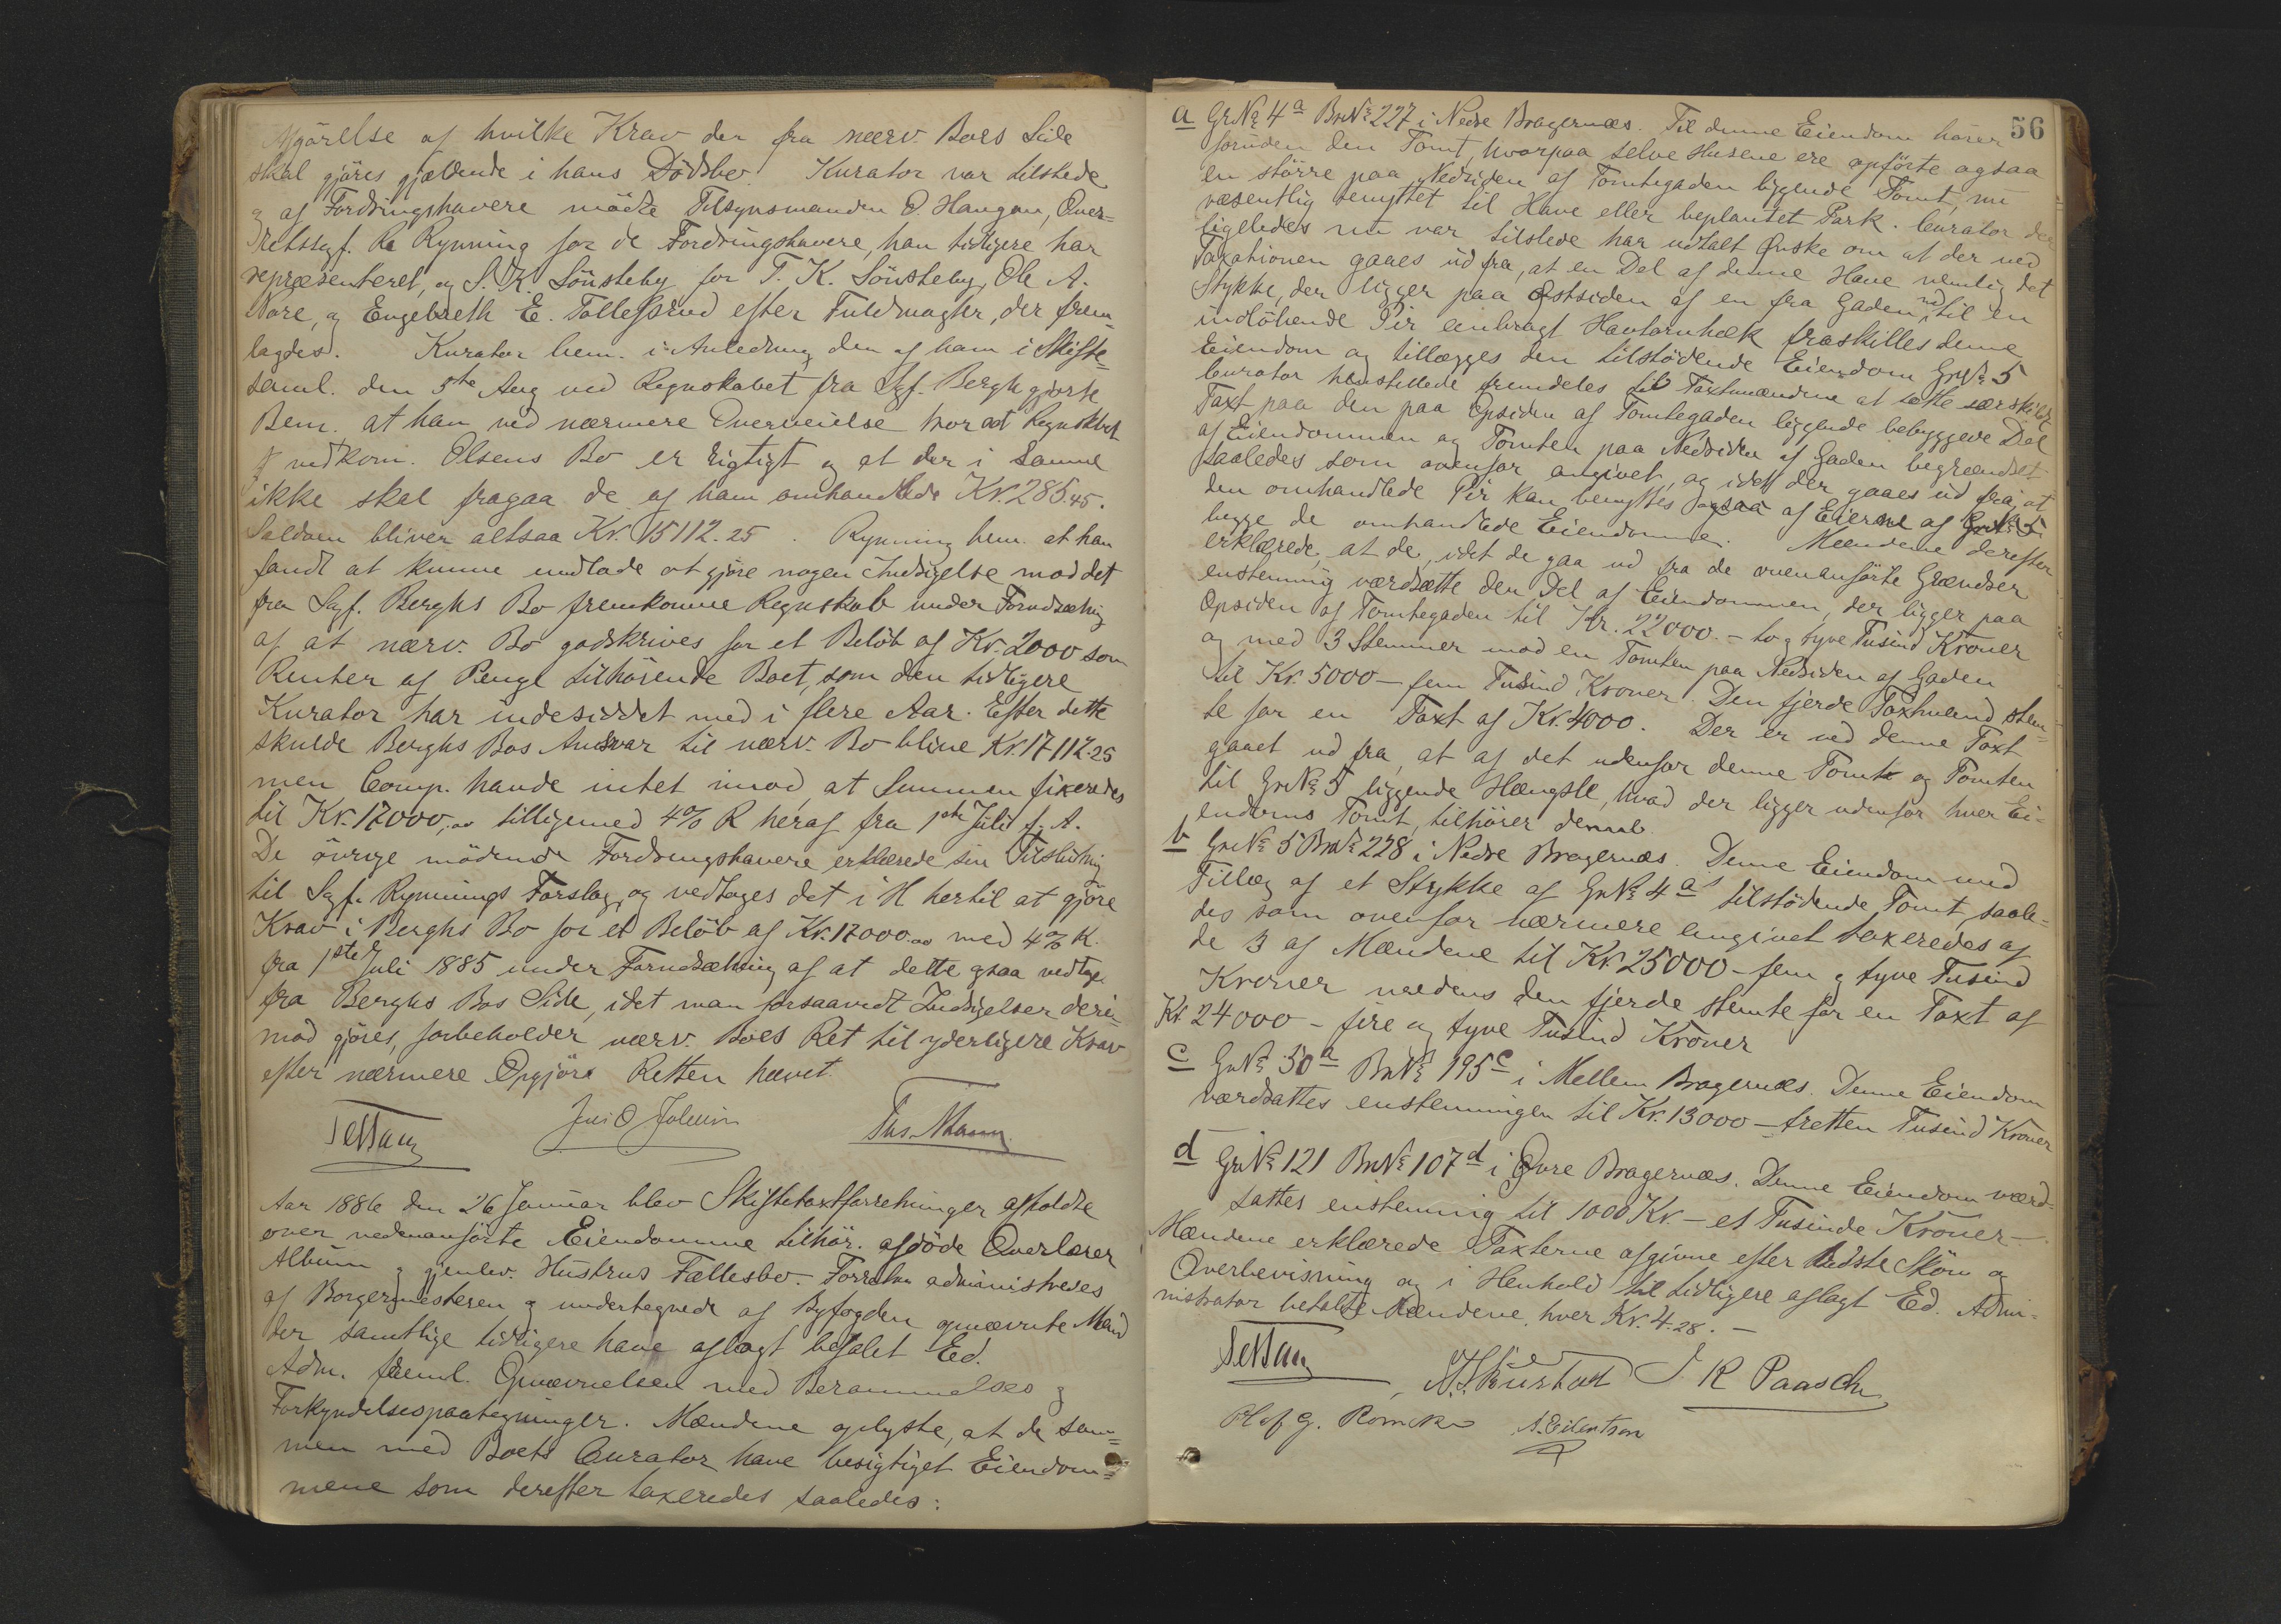 Afgörelse af hvilke Krav der fra nærv. Boes Side
skal gjöres gjældende i hans Dödsbo. Kurator var tilstede
og af Fordringshavere mödte Tilsynsmanden O. Haugan, Over=
retssgf. Rynning for de Fordringshavere, han tidligere har
repræsenteret, og S. K. Sönsteby for T. K. Sönsteby, Ole A.
Nore, og Engebreth E. Tollefsrud efter Fuldmagter, der frem=
lagdes. Kurator bem. i Anledning den af ham i Skifte=
saml. den 5te Aug ved Regnskabet fra Sgf. Bergh gjorte
Bem. at han ved nærmere Overveielse tror at Regnskabet
vedkom. Olsens Bo er rigtigt og at der i Samme
ikke skal fragaa de af ham omhandlede Kr. 285.45.
Saldoen bliver altsaa Kr. 15112.25. Rynning bem. at han
fandt at kunne undlade at gjöre nogen Indsigelse mod det
fra Sgf. Berghs Bo fremkomne Regnskab under Forudsætning
af at nærv. Bo godskrives for et Belöb af Kr. 2000 som
Renter af Penge tilhörende Boet, som den tidligere
Kurator har indesiddet med i flere Aar. Efter dette
skulde Berghs Bos Ansvar til nærv. Bo blive Kr. 17112.25
men Comp. havde intet imod, at Summen fixeredes
til Kr. 17000,00 tilligemed 4% R heraf fra 1ste Juli f. A.
De övrige mödende Fordringshavere erklærede sin Tilslutning
til Sgf. Rynnings Forslag, og vedtoges det i H hertil at gjöre
Krav i Berghs Bo for et Belöb af Kr. 17000.00 med 4% R.
fra 1ste Juli 1885 under Forudsætning af at dette ogsaa vedtages
fra Berghs Bos Side, idet man forsaavidt Indsigelser deri=
mod gjöres, forbeholder nærv. Boes Ret til yderligere Krav
efter nærmere Opgjör. Retten hævet.
Aar 1886 den 26 Januar blev Skiftetaxtforretninger afholdte
over nedenanförte Eiendomme tilhör. afdöde Overlærer
Album og gjenlev. Hustrus Fællesbo. Forretn. administreredes
af Borgermesteren og undertegnede af Byfogden opnævnte Mænd
der samtlige tidligere have aflagt befalet Ed.
Adm. freml. Opnævnelsen med Berammelses og
Forkyndelsespaategninger. Mændene oplyste, at de sam=
men med Boets Curator have besigtiget Eiendom=
mene som derefter taxeredes saaledes:
56
a Gr. No 4a Br No 227 i Nedre Bragernæs. Til denne Eiendom hörer
foruden den Tomt, hvorpaa selve Husene ere opförte ogsaa
en större paa Nedsiden af Tomtegaden liggende Tomt, nu
væsentlig benyttet til Have eller beplantet Park. Curator der
ligeledes nu var tilstede har udtalt Önske om at der ved
Taxationen gaaes ud fra, at en Del af denne Have nemlig det
Stykke, der ligger paa Östsiden af en fra Gaden ned til en
indlöbende Pir anbragt Havtornhæk fraskilles denne
Eiendom og tillægges den tilstödende Eiendom Gr No 5
Curator henstillede fremdeles til Taxtmændene at sætte særskilt
Taxt paa den paa Opsiden af Tomtegaden liggende bebyggede Del
af Eiendommen og Tomten paa Nedsiden af Gaden begrændset
saaledes som ovenfor angivet, og idet der gaaes ud fra, at
den omhandlede Pir kan benyttes ogsaa af Eierne af Gr No 5
begge de omhandlede Eiendomme. Mændene derefter
erklærede, at de, idet de gaa ud fra de ovenanförte Grændser
enstemmig værdsætte den Del af Eiendommen, der ligger paa
Opsiden af Tomtegaden til Kr. 22000 – to og tyve Tusind Kroner
og med 3 Stemmer mod en Tomten paa Nedsiden af Gaden
til Kr. 5000 – fem Tusind Kroner. Den fjerde Taxtmand stem=
te for en Taxt af Kr. 4000. Der er ved denne Taxt
gaaet ud fra, at af det udenfor denne Tomt og Tomten
til Gr No 5 liggende Hængsle, hvad der ligger udenfor hver Ei-
endoms Tomt, tilhörer densaab
b Gr No 5 Br No 228 i Nedre Bragernæs. Denne Eiendom med
Tillæg af et Stykke af Gr No 4a's tilstödende Tomt, saale=
des som ovenfor nærmere angivet taxeredes af
de 3 af Mændene til Kr. 25000 – fem og tyve Tusind
Kroner medens den fjerde stemte for en Taxt af
Kr 24000 – fire og tyve Tusind Kroner
c Gr No 50a Br No 195c i Mellem Bragernæs. Denne Eiendom
værdsattes enstemmigen til Kr. 13000 – tretten Tusind Kroner
d Gr No 121 Br No 107d i Övre Bragernæs. Denne Eiendom værd=
sattes enstemmig til 1000 Kr. – et Tusinde Kroner –
Mændene erklærede Taxterne afgivne efter bedste Skön og
Overbevisning og i Henhold til tidligere aflagt Ed. Admi=
nistrator betalte Mændene, hver Kr. 4.28. –
J R Paasch
Olaf G. Romcke A. Eilertsen